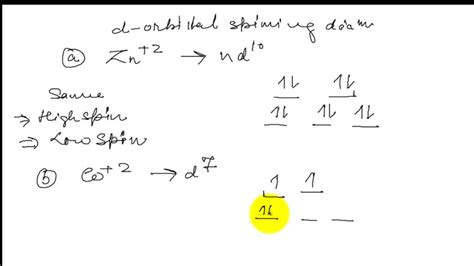 d-orbital spining diam
ⓐ Zn⁺² → nd¹⁰
Same
→ High spin
⇒ Low spin
1↓ 1↓
1↓ 1↓ 1↓
ⓑ Co⁺² → d⁷
1 1
1↓ _ _